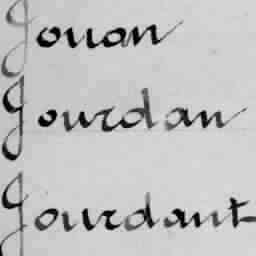 Jouan
Jourdan
Jourdant